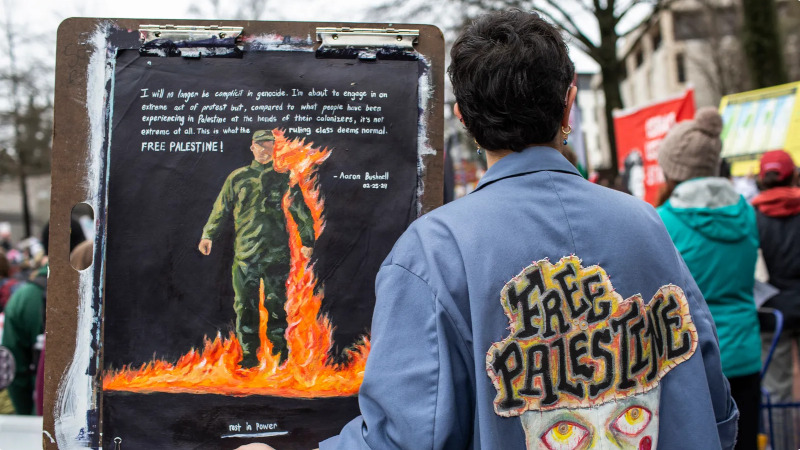 I will no longer be complicit in genocide. I'm about to engage in an
extreme act of protest but, compared to what people have been
experiencing in Palestine at the hands of their colonizers, it's not
extreme at all. This is what the ruling class deems normal.
FREE PALESTINE!
- Aaron Bushnell
02-25-24
rest in power
FREE
PALESTINE